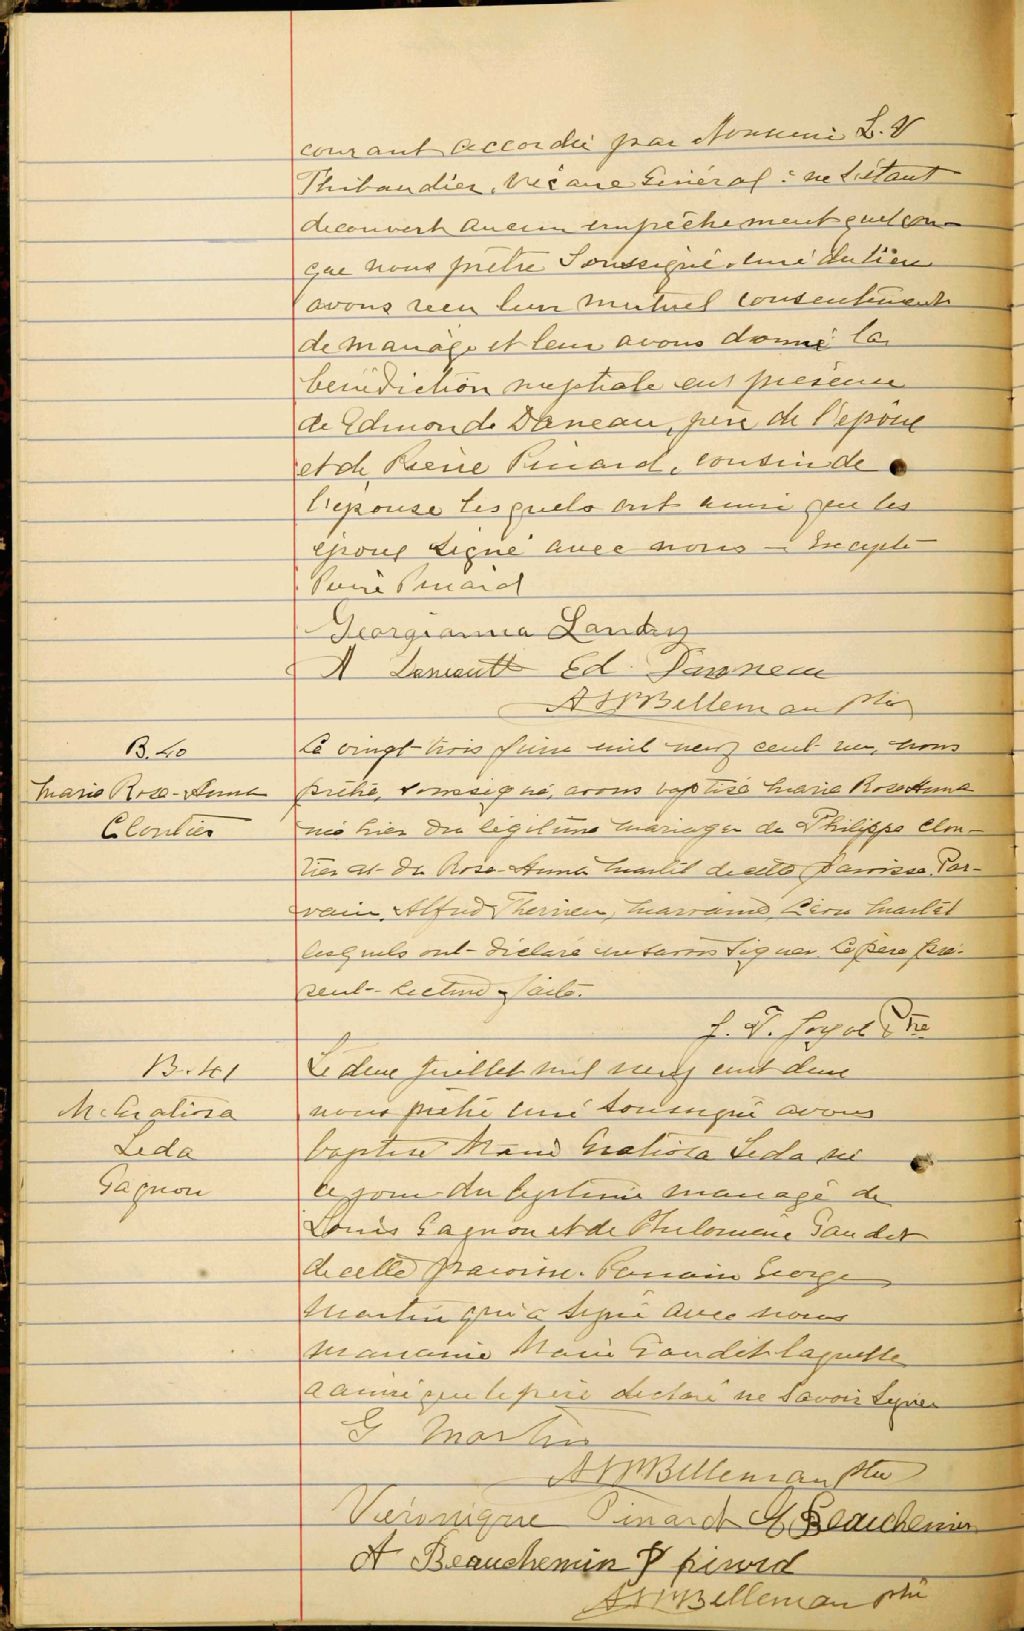 courant accordée par Monseur L. V
Thibaudier, Vicaire Général : ne s'étant
decouvert aucun empêchement quelcon-
que nous prêtre Soussigné, curé du lieu
avons reçu leur mutuel consentement
de mariage et leur avons donné la
bénédiction nuptiale en présence
de Edmond Daneau, père de l'époux
et de Pierre Pinard, cousin de
l'épouse lesquels ont ainsi que les
époux signé avec nous - Excepté
Pierre Pinard
Georgianna Landry
A Daneault Ed. Danneau
Bellemare ptre
B. 40
Marie Rose-Anna
Cloutier
Le vingt-trois juin mil neuf cent nous
prêtre, soussigné, avons baptisé Marie Rose Anna
née hier du légitime mariage de Philippe Clou-
tier et de Rose-Anna Martel de cette paroisse. Par-
rain, Alfred Therrien, marraine, Martel
lesquels ont déclaré ne savoir signer. Le père pré-
sent. Lecture faite.
Ptre
B. 41
M. Gratiosa
Leda
Gagnon
Le deux Juillet mil neuf cent deux
nous prêtre curé soussigné avons
baptisé Marie Gratiosa Leda né
ce jour du légitime mariage de
Louis Gagnon et de Philomène Gaudet
de cette paroisse. Parrain George
Martin qui a signé avec nous
marraine Marie Gaudet laquelle
a ainsi que le père déclaré ne savoir signer
G Martin
Bellemare ptre
Véronique Pinard G Beauchemin
A Beauchemin P pinard
Bellemare ptre